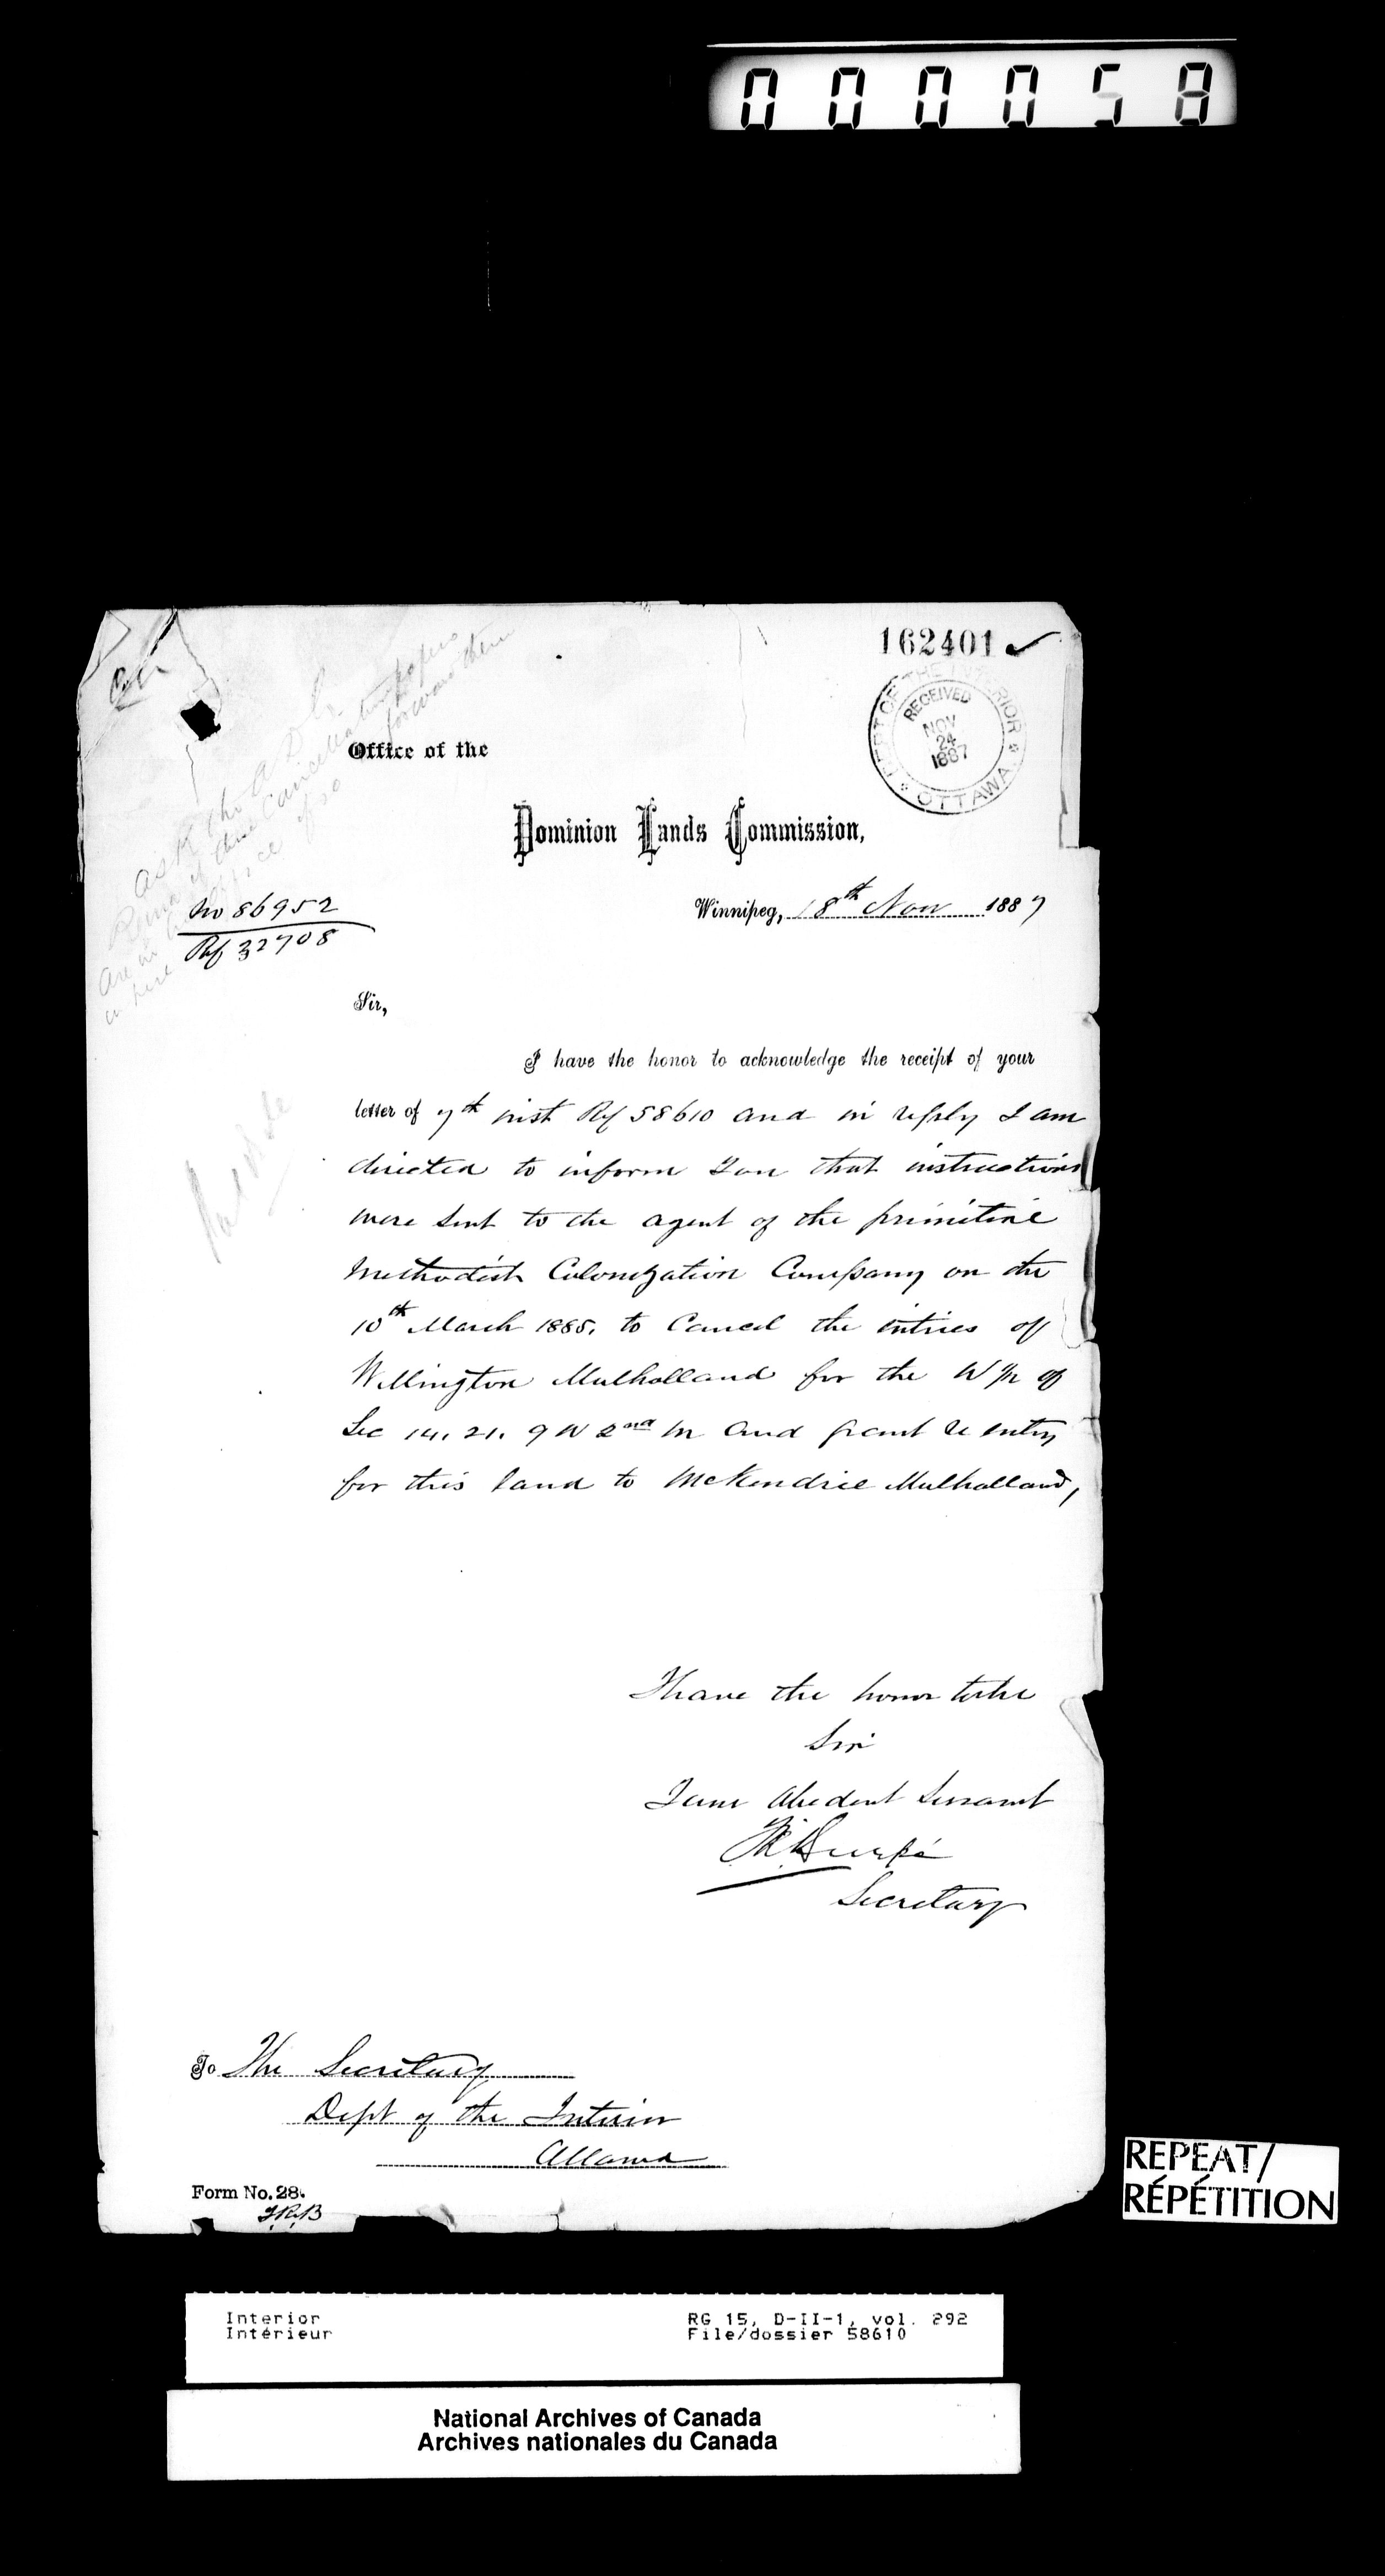 000058
162401 ✓
DEPT OF THE INTERIOR
RECEIVED
NOV
24
1887
* OTTAWA *
Ask the
if these Cancellation papers
are in
so forward them
Office of the
Dominion Lands Commission,
No 86952
Ref 32708
Winnipeg, 18th Nov 1887
Sir,
I have the honor to acknowledge the receipt of your
letter of 7th inst Ref 58610 and in reply I am
directed to inform you that instructions
were sent to the agent of the primitive
Methodist Colonization Company on the
10th March 1885, to Cancel the entries of
Wellington Mulholland for the W 1/2 of
Sec 14. 21. 9 W 2nd M and grant re entry
for this land to McKendrie Mulholland,
I have the honor to be
Sir
Your obedient servant
Secretary
To The Secretary
Dept of the Interior
Ottawa
Form No. 28.
REPEAT/
RÉPÉTITION
Interior RG 15, D-II-1, vol. 292
Intérieur File/dossier 58610
National Archives of Canada
Archives nationales du Canada